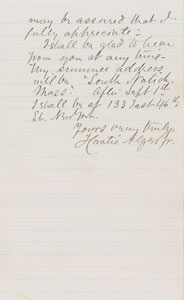 may be assured that I
fully appreciate.
I shall be glad to hear
from you at any time.
My summer address
will be "South Natick,
Mass". After Sept 1st
I shall be at 133 East 46th
St. New York.
Yours very truly,
Horatio Alger Jr.